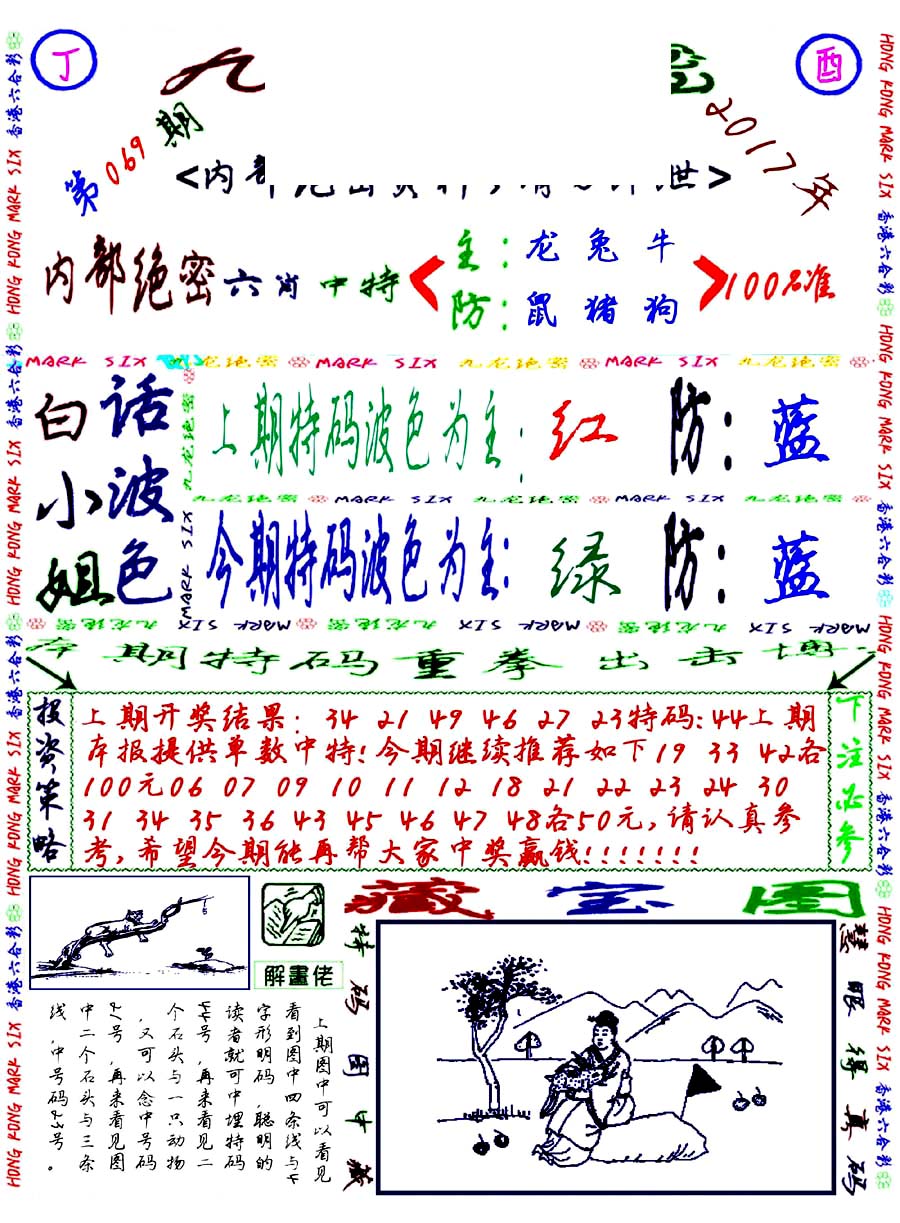 丁
酉
九
第069期
2017年
<内
世>
内部绝密六肖中特
主:龙兔牛
防:鼠猪狗
100%准
MARK SIX 九龙绝密 MARK SIX 九龙绝密 MARK SIX 九龙绝密
白话
小波
姐色
上期特码波色为主:红 防:蓝
九龙绝密 MARK SIX 九龙绝密 MARK SIX 九龙绝密
今期特码波色为主:绿 防:蓝
九龙绝密 MARK SIX 九龙绝密 MARK SIX 九龙绝密 MARK SIX
期特码重拳出击
投资策略
上期开奖结果: 34 21 49 46 27 23特码:44上期
本报提供单数中特!今期继续推荐如下19 33 42各
100元06 07 09 10 11 12 18 21 22 23 24 30
31 34 35 36 43 45 46 47 48各50元,请认真参
考,希望今期能再帮大家中奖赢钱!!!!!!!
下注必参
藏宝图
解畫佬
上期图中可以看见
看到图中四条线与4
字形明码,聪明的
读者就可中埋特码
44号,再来看见二
个石头与一只动物
,又可以念中号码
21号,再来看见图
中二个石头与三条
线,中号码23号。
特码图中藏
慧眼得真码
HONG KONG MARK SIX 香港六合彩
HONG KONG MARK SIX 香港六合彩